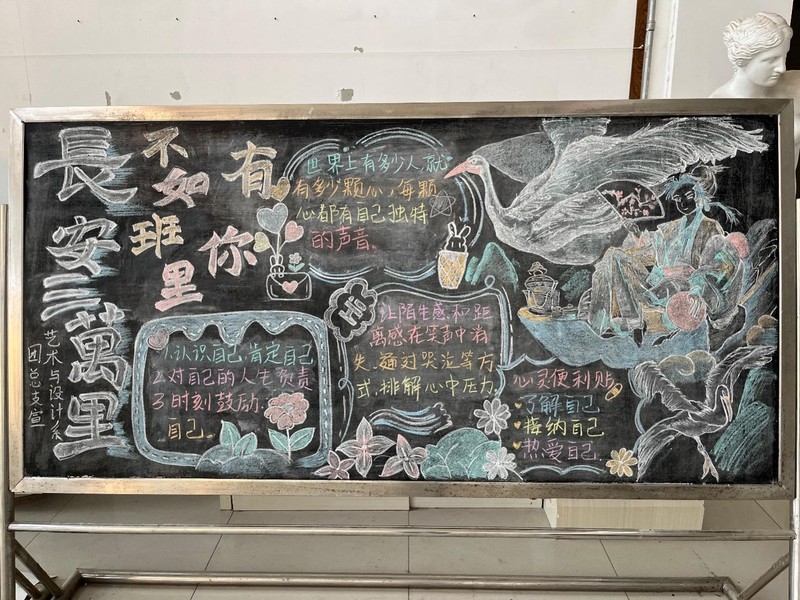 長安三萬里
不如班里
有你
艺术与设计系
团总支宣
世界上有多少人,就
有多少颗心,每颗
心都有自己独特
的声音.
1.认识自己,肯定自己
2.对自己的人生负责
3.时刻鼓励
自己.
让陌生感和距
离感在笑声中消
失,通过哭泣等方
式,排解心中压力
心灵便利贴
了解自己
接纳自己
热爱自己